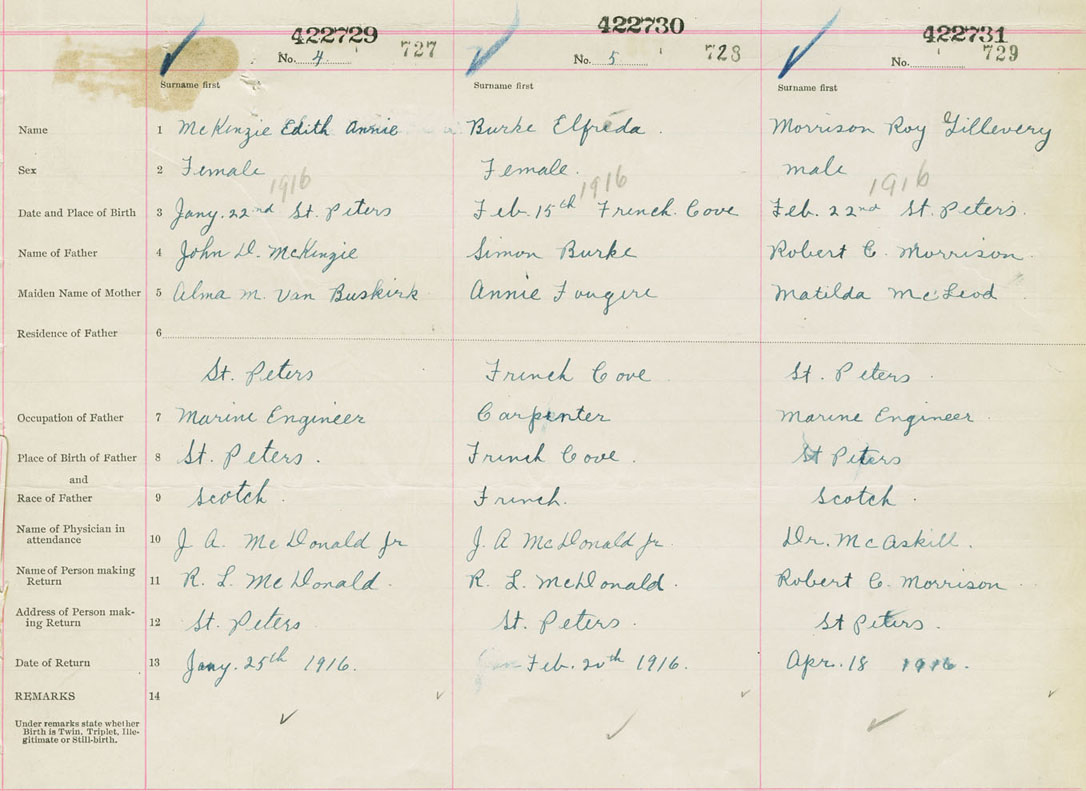 422729 422730 422731
No. 4 727 No. 5 728 No. 729
Surname first Surname first Surname first
Name 1 McKinzie Edith Annie Burke Elfreda. Morrison Roy Gillevery
Sex 2 Female Female. male
1916 1916 1916
Date and Place of Birth 3 Jany. 22nd St. Peters Feb. 15th French Cove Feb. 22nd St. Peters.
Name of Father 4 John D. McKinzie Simon Burke Robert C. Morrison
Maiden Name of Mother 5 Alma M. Van Buskirk Annie Fougere Matilda McLeod
Residence of Father 6
St. Peters French Cove St. Peters
Occupation of Father 7 Marine Engineer Carpenter Marine Engineer
Place of Birth of Father 8 St. Peters. French Cove. St Peters
and
Race of Father 9 Scotch. French. Scotch.
Name of Physician in
attendance 10 J A. McDonald Jr J. A McDonald Jr. Dr. McAskill.
Name of Person making
Return 11 R. L. McDonald. R. L. McDonald. Robert C. Morrison
Address of Person mak-
ing Return 12 St. Peters St. Peters. St Peters.
Date of Return 13 Jany. 25th 1916. Feb. 20th 1916. Apr. 18 1916.
REMARKS 14
Under remarks state whether
Birth is Twin, Triplet, Ille-
gitimate or Still-birth.